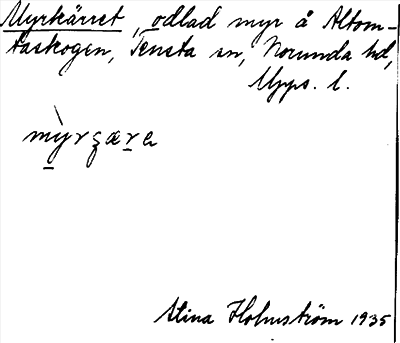 Myrkärret, odlad myr å Altom-
taskogen, Tensta sn, Norunda hd,
Upps. l.
Stina Holmström 1935